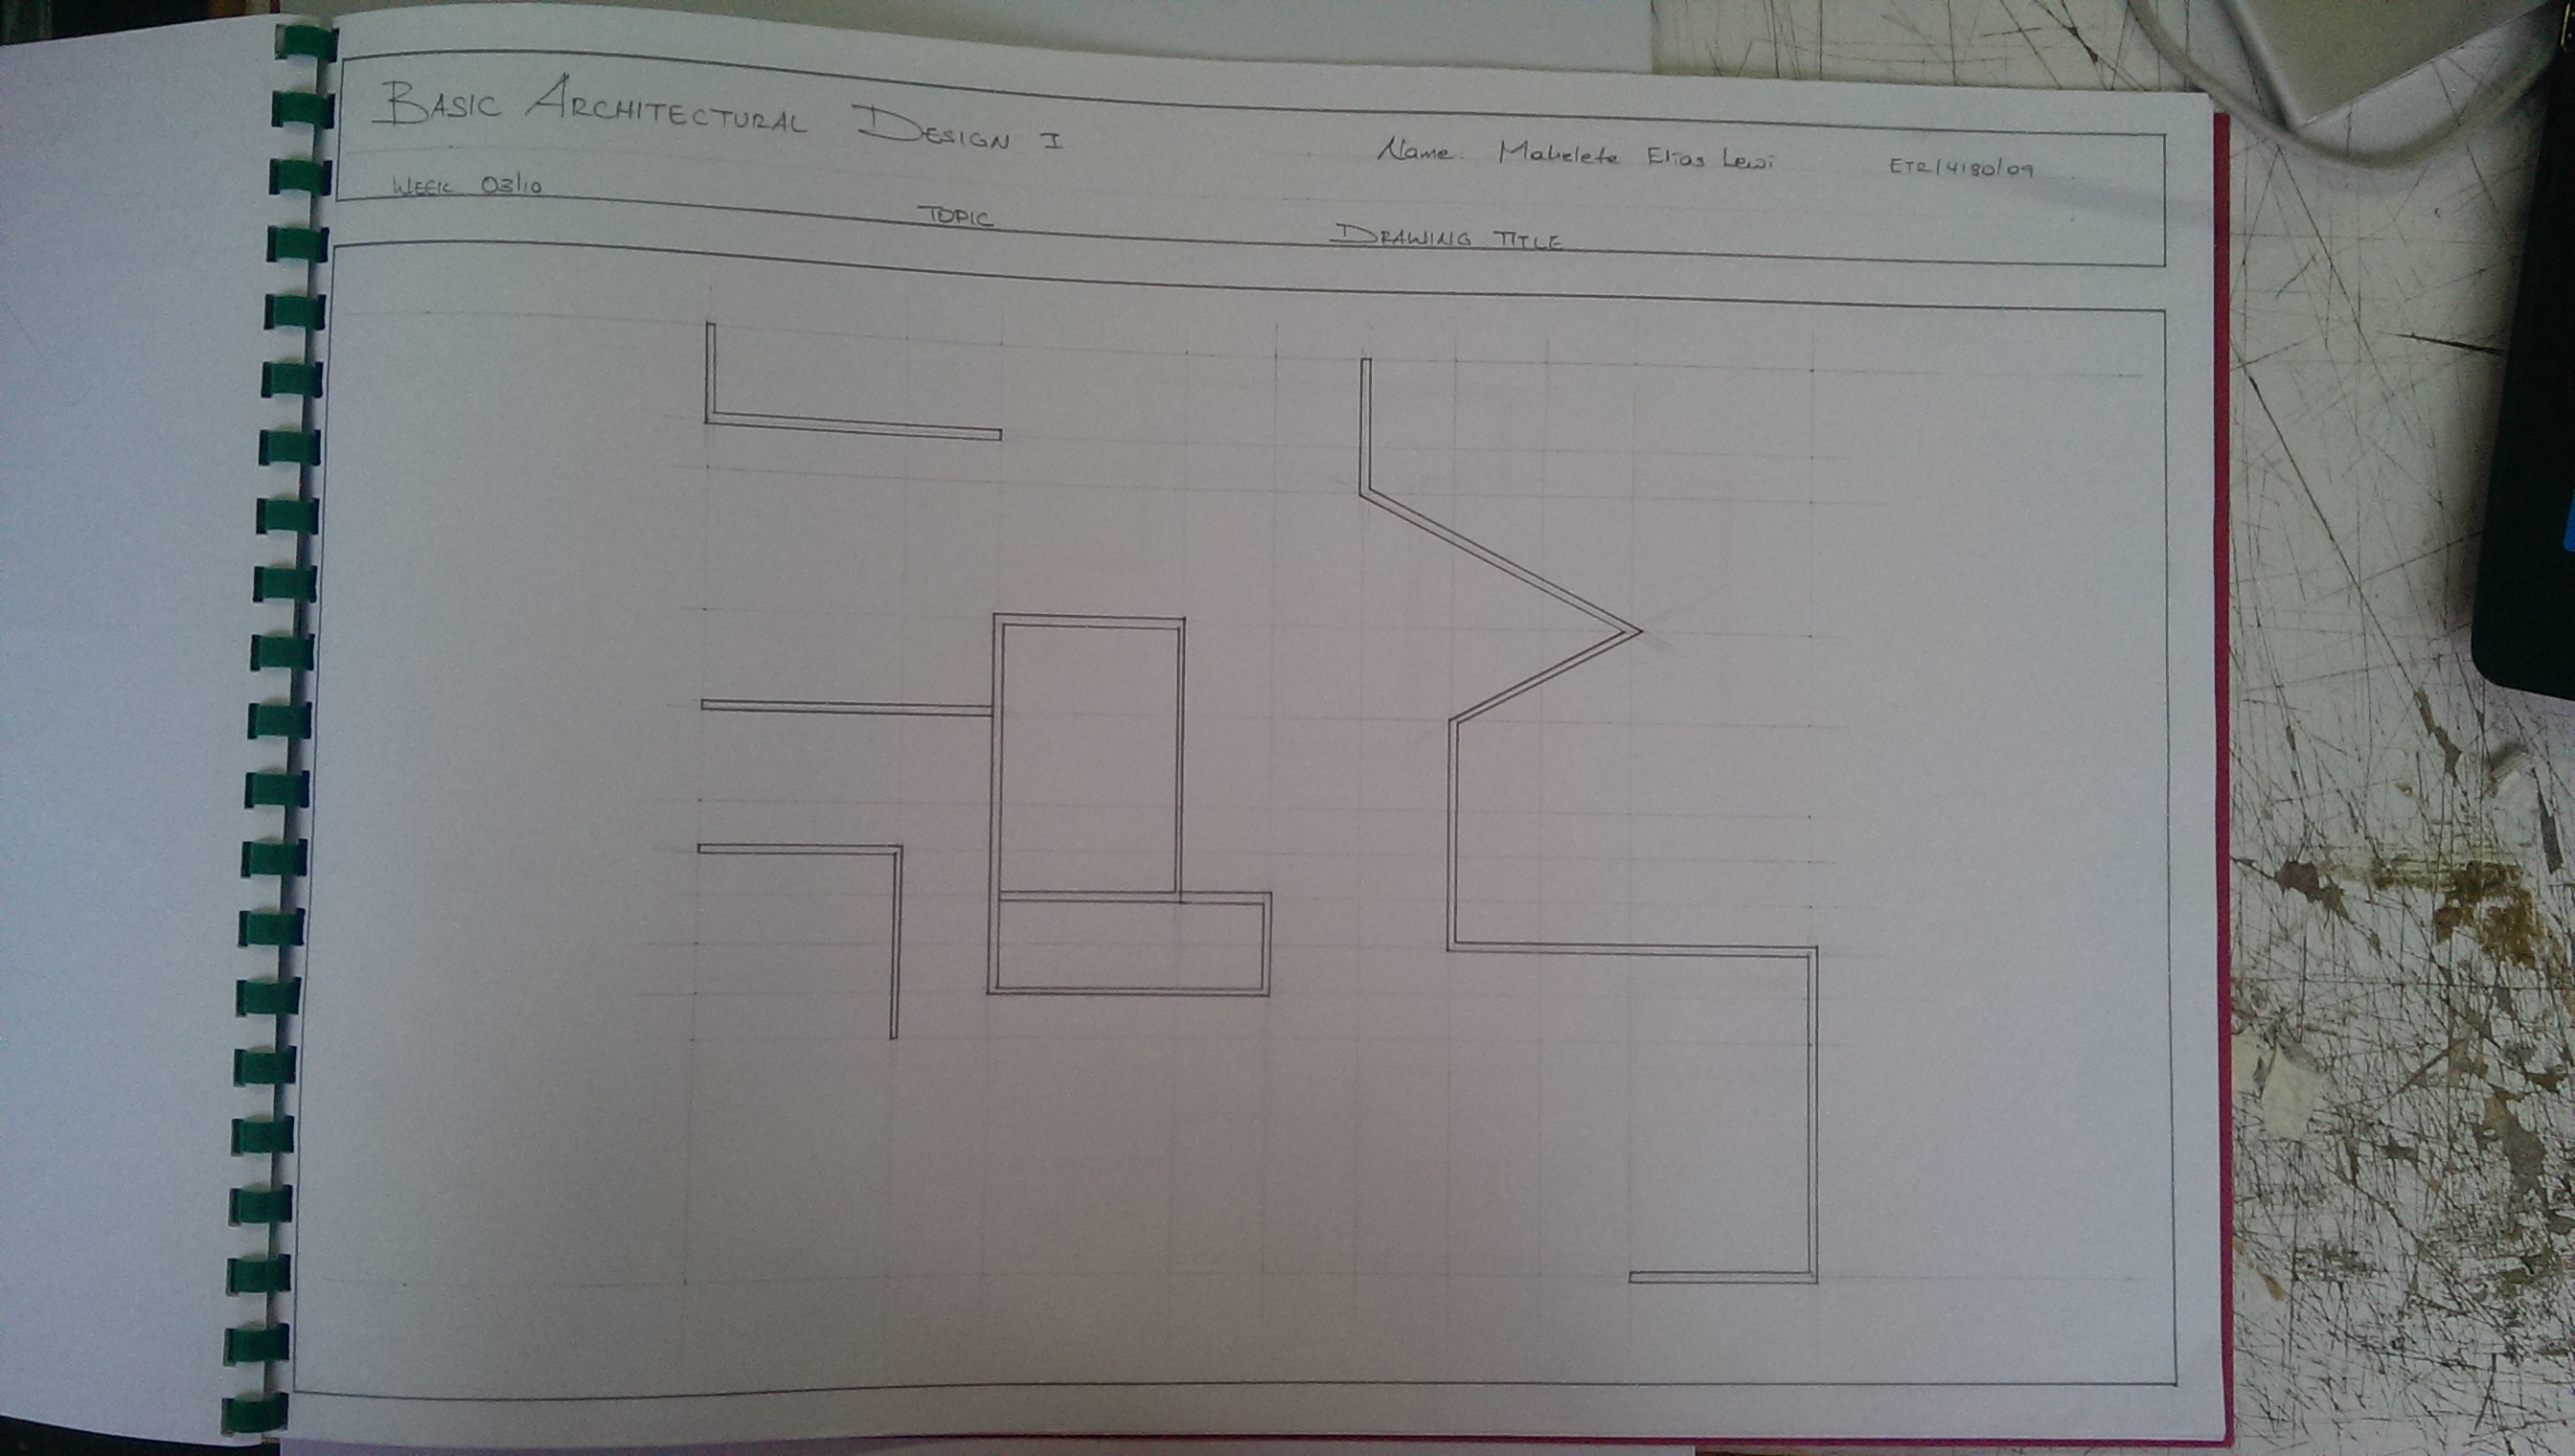 BASIC ARCHITECTURAL DESIGN I
Name. Mahelete Elias Lewi ETR/4180/09
WEEK 03/10
TOPIC
DRAWING TITLE